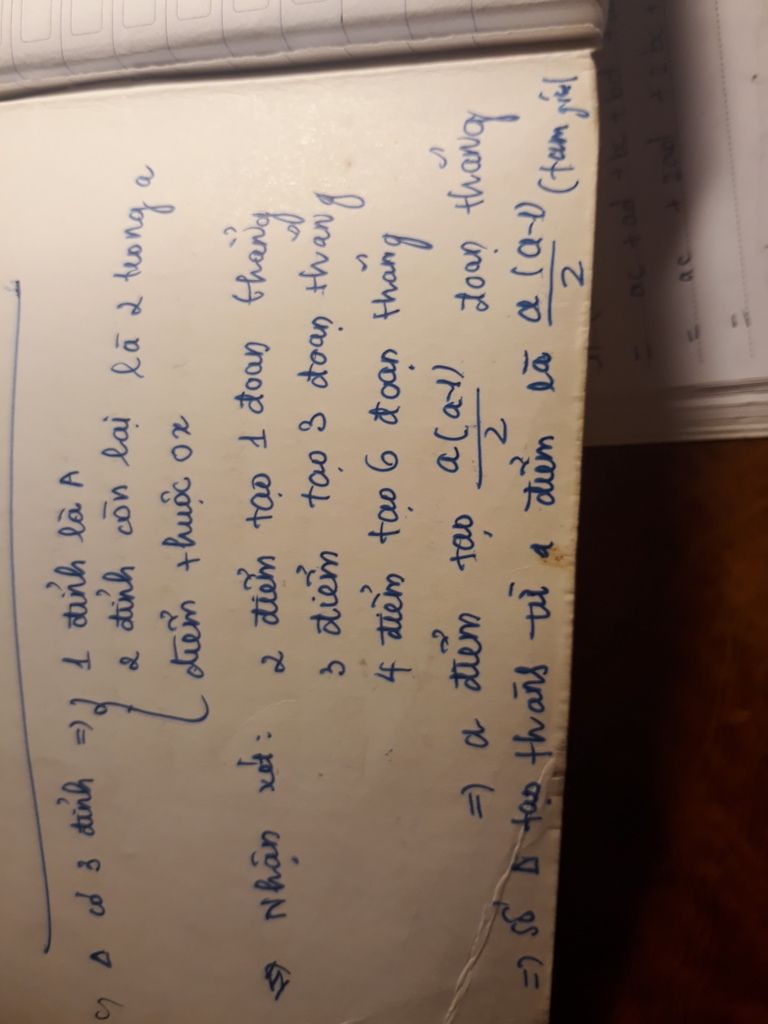 c) Δ có 3 đỉnh => { 1 đỉnh là A
2 đỉnh còn lại là 2 trong a
điểm thuộc Ox
=> Nhận xét: 2 điểm tạo 1 đoạn thẳng
3 điểm tạo 3 đoạn thẳng
4 điểm tạo 6 đoạn thẳng
=> a điểm tạo a(a-1)/2 đoạn thẳng
=> Số Δ tạo thành từ a điểm là a(a-1)/2 (tam giác)
= ac + ad + bc + bd
= ac + 2ad + 2bc +
=